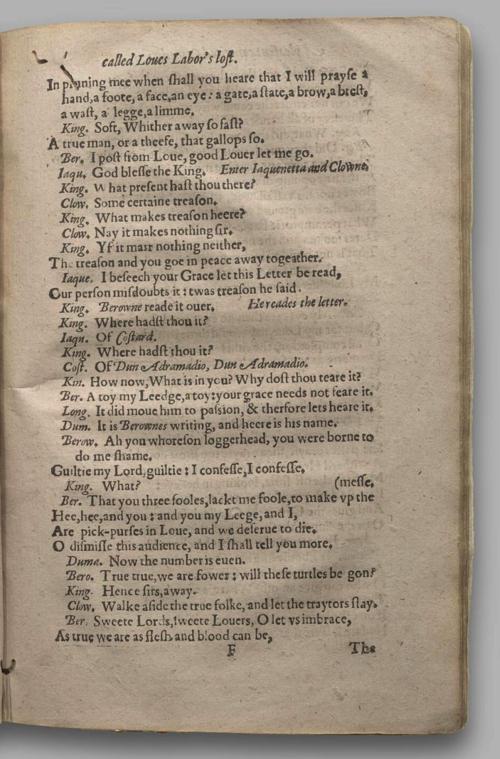 called Loues Labor's lost.
In pruning mee when shall you heare that I will prayse a
hand, a foote, a face, an eye: a gate, a state, a brow, a brest,
a wast, a legge, a limme.
King. Soft, Whither away so fast?
A true man, or a theefe, that gallops so.
Ber. I post from Loue, good Louer let me go.
Iaqu. God blesse the King. Enter Iaquenetta and Clowne.
King. What present hast thou there?
Clow. Some certaine treason.
King. What makes treason heere?
Clow. Nay it makes nothing sir.
King. Yf it marr nothing neither,
The treason and you goe in peace away togeather.
Iaque. I beseech your Grace let this Letter be read,
Our person misdoubts it: twas treason he said.
King. Berowne reade it ouer. He reades the letter.
King. Where hadst thou it?
Iaqu. Of Costard.
King. Where hadst thou it?
Cost. Of Dun Adramadio, Dun Adramadio.
Kin. How now, What is in you? Why dost thou teare it?
Ber. A toy my Leedge, a toy: your grace needs not feare it.
Long. It did moue him to passion, & therfore lets heare it.
Dum. It is Berownes writing, and heere is his name.
Berow. Ah you whoreson loggerhead, you were borne to
do me shame.
Guiltie my Lord, guiltie: I confesse, I confesse.
King. What? (messe,
Ber. That you three fooles, lackt me foole, to make vp the
Hee, hee, and you: and you my Leege, and I,
Are pick-purses in Loue, and we deserue to die.
O dismisse this audience, and I shall tell you more.
Duma. Now the number is euen.
Bero. True true, we are fower: will these turtles be gon?
King. Hence sirs, away.
Clow. Walke aside the true folke, and let the traytors stay.
Ber. Sweete Lords, sweete Louers, O let vs imbrace,
As true we are as flesh and blood can be,
F The